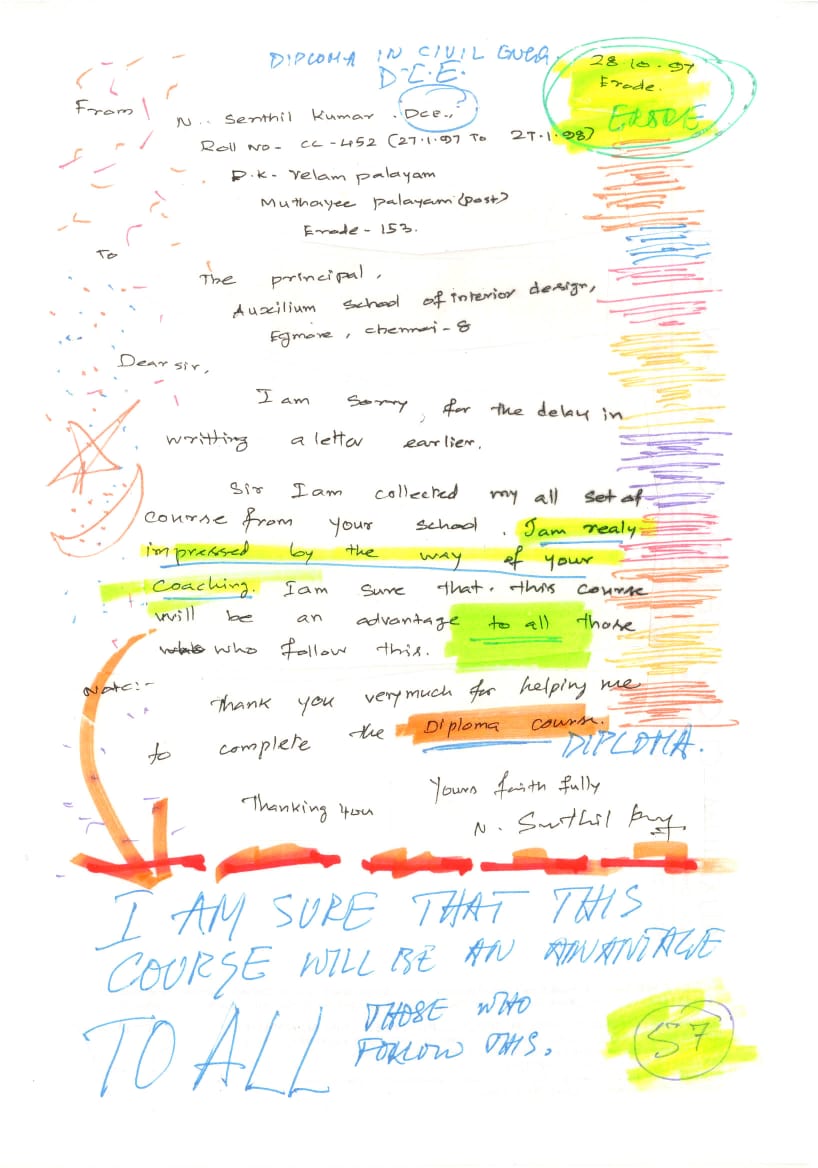 DIPLOMA IN CIVIL ENGG.
D.C.E.
28.10.97
Erode.
ERODE
From
N. Senthil Kumar. Dce., ?
Roll No - CC-452 (27.1.97 To 27.1.98)
D.K- Velam palayam
Muthayee palayam (post)
Erode - 153.
To
The principal,
Auxilium school of interior design,
Egmore, chennai - 8
Dear sir,
I am sorry, for the delay in
writting a letter earlier.
Sir I am collected my all set of
course from your school. I am realy
impressed by the way of your
coaching. I am sure that. this course
will be an advantage to all those
who follow this.
Note:-
Thank you verymuch for helping me
to complete the Diploma course.
DIPLOMA.
Yours faith fully
Thanking you
N. Senthil
I AM SURE THAT THIS
COURSE WILL BE AN ADVANTAGE
TO ALL THOSE WHO
FOLLOW THIS.
57